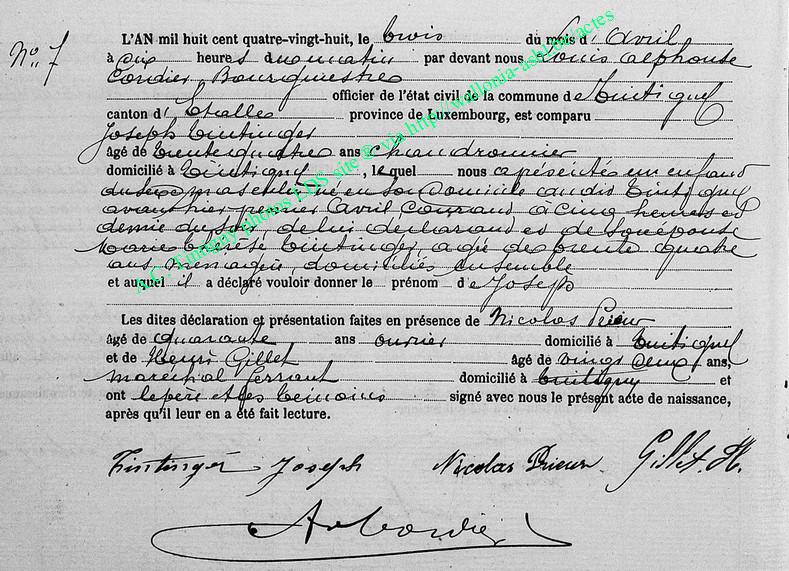 No. 7
L'AN mil huit cent quatre-vingt-huit, le trois du mois d'Avril
à dix heures du matin par devant nous Louis Alphonse
Cordier Bourgmestre
officier de l'état civil de la commune de Tintigny
canton d'Etalles province de Luxembourg, est comparu
Joseph Tintinger
âgé de trente quatre ans chaudronnier
domicilié à Tintigny, lequel nous a présenté un enfant
du sexe masculin né en son domicile audit Tintigny
avant hier premier Avril courant à cinq heures et
demie du soir, de lui déclarant et de son épouse
Marie Thérèse Tintinger, agée de trente quatre
ans, ménagère, domiciliés ensemble
et auquel il a déclaré vouloir donner le prénom de Joseph
Les dites déclaration et présentation faites en présence de Nicolas Prieur
âgé de quarante ans ouvrier domicilié à Tintigny
et de Henri Gillet âgé de vingt deux ans,
maréchal ferrant domicilié à Tintigny et
ont le père et les témoins signé avec nous le présent acte de naissance,
après qu'il leur en a été fait lecture.
Tintinger Joseph Nicolas Prieur Gillet. H.
A Cordier
A.C. Tintigny photos LDS site @ via http://wallonia-asbl.net/actes